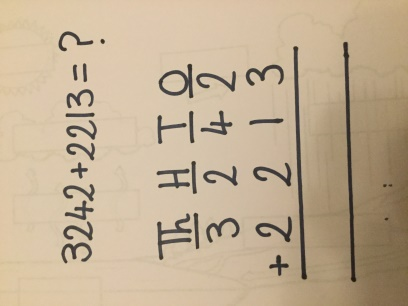 3242+2213=?
Th H T O
3 2 4 2
+ 2 2 1 3